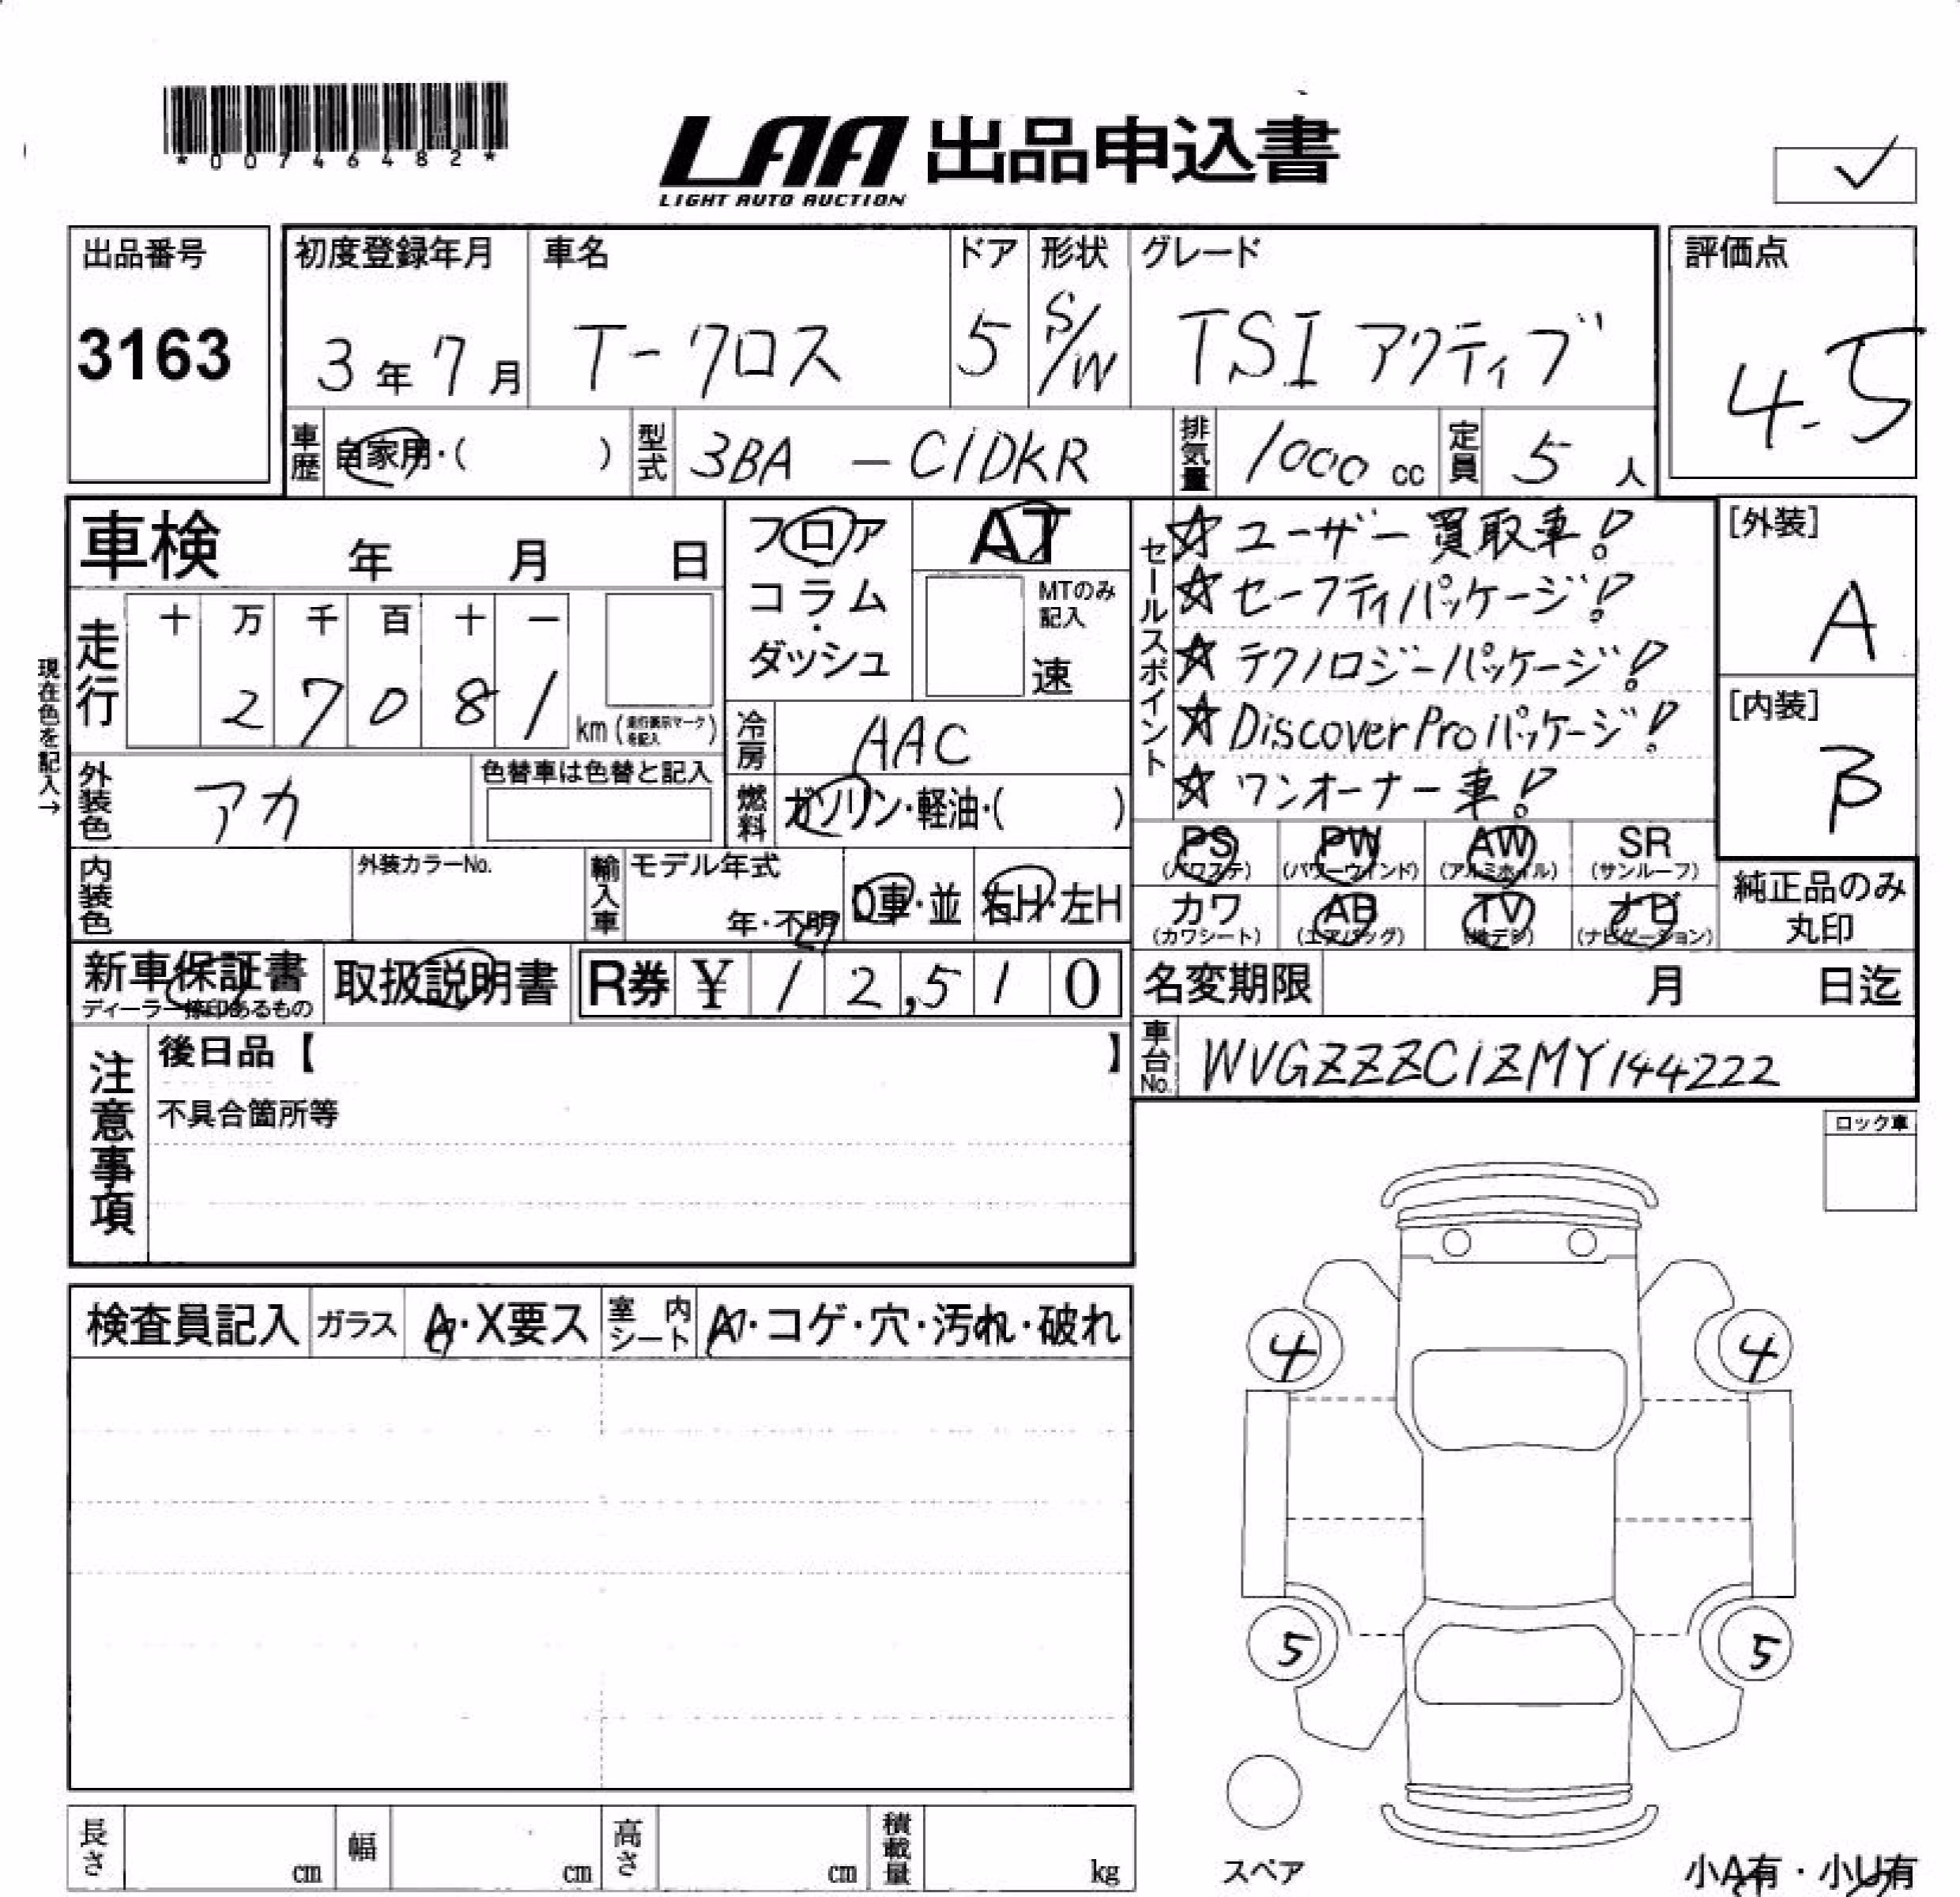 *00746482*
LAA 出品申込書
LIGHT AUTO AUCTION
出品番号
3163
初度登録年月
3年7月
車名
T-クロス
ドア
5
形状
S/W
グレード
TSI アクティブ
評価点
4.5
車歴
自家用・( )
型式
3BA - C1DKR
排気量
1000 cc
定員
5 人
車検 年 月 日
フロア
コラム
・
ダッシュ
AT
MTのみ
記入
速
走行
十 万 千 百 十 一
2 7 0 8 1
km (走行表示マークを記入)
現在色を記入→
冷房
AAC
燃料
ガソリン・軽油・( )
外装色
アカ
色替車は色替と記入
内装色
外装カラーNo.
輸入車
モデル年式
年・不明
D車・並
右H・左H
セールスポイント
☆ユーザー買取車!
☆セーフティパッケージ!
☆テクノロジーパッケージ!
☆Discover Proパッケージ!
☆ワンオーナー車!
[外装]
A
[内装]
B
PS
(パワステ)
PW
(パワーウインド)
AW
(アルミホイル)
SR
(サンルーフ)
カワ
(カワシート)
AB
(エアバッグ)
TV
(地デジ)
ナビ
(ナビゲーション)
純正品のみ
丸印
新車保証書
ディーラー捺印あるもの
取扱説明書
R券 ¥ 12,510
名変期限 月 日迄
車台No.
WVGZZZC1ZMY144222
注意事項
後日品【 】
不具合箇所等
ロック車
検査員記入
ガラス
A・X要ス
室内シート
A・コゲ・穴・汚れ・破れ
4
4
5
5
スペア
長さ
cm
幅
cm
高さ
cm
積載量
kg
小A有・小U有